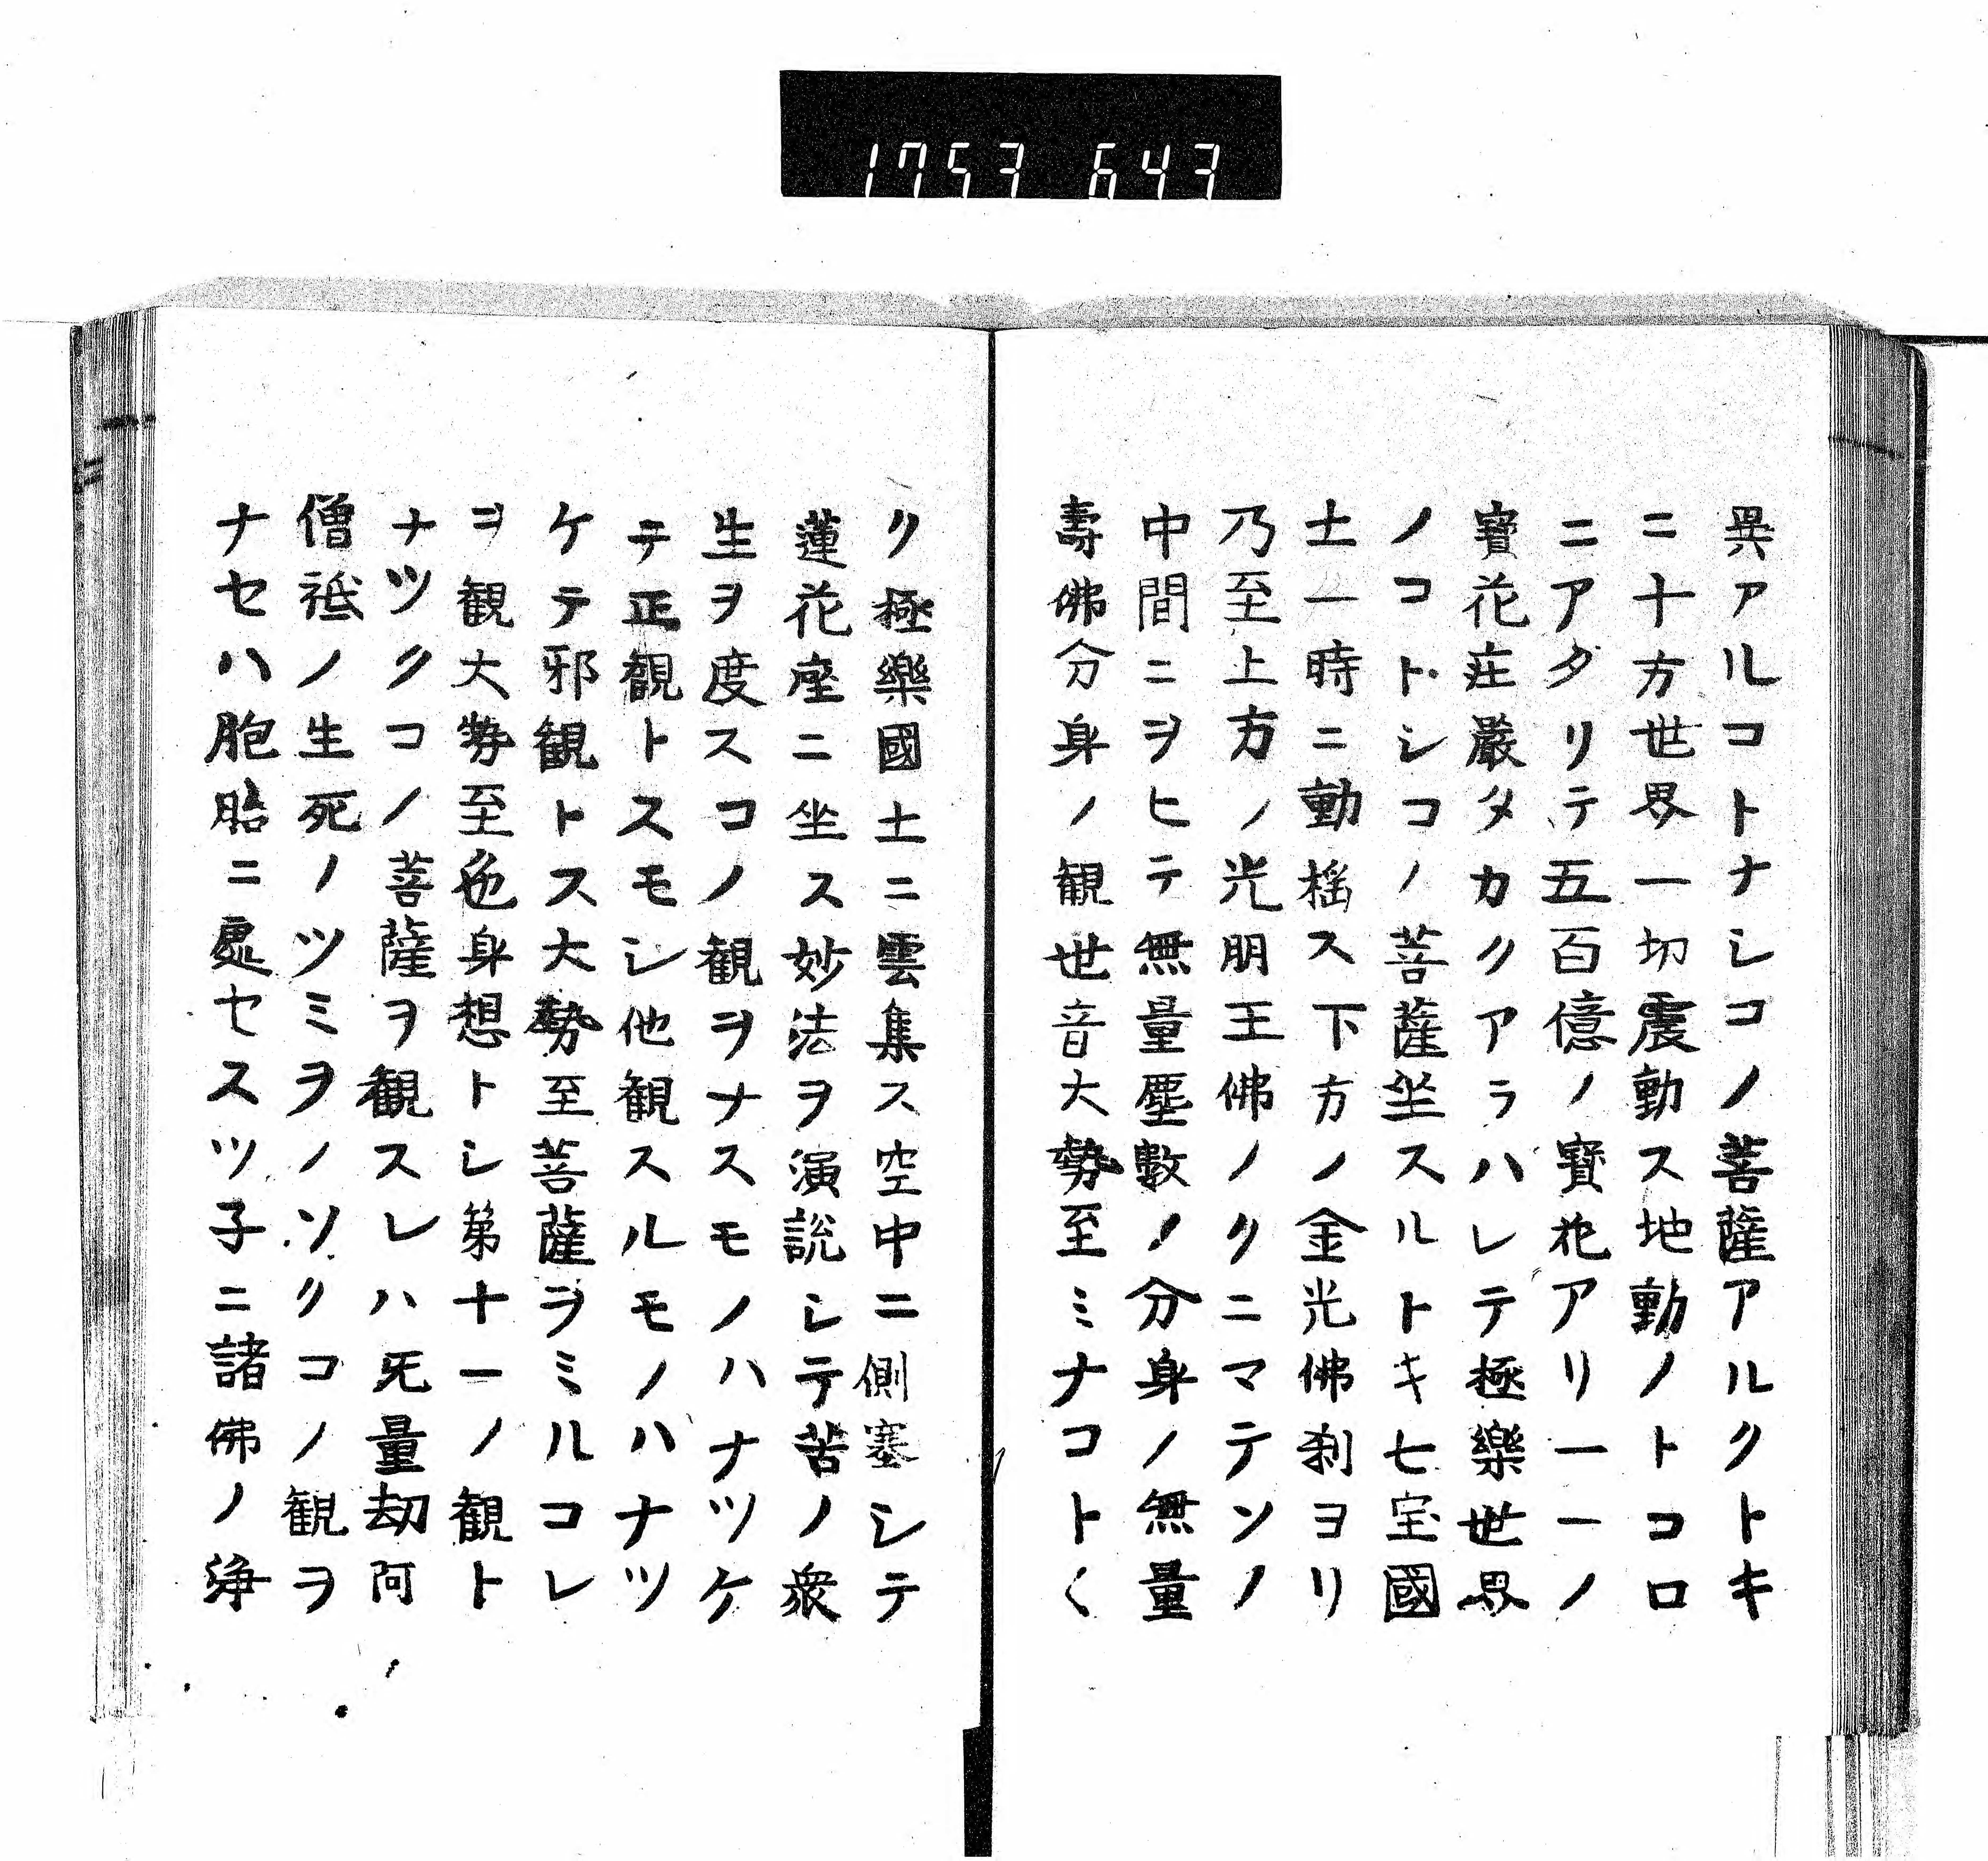 1753 643
異アルコトナシコノ菩薩アルクトキ
ニ十方世界一切震動ス地動ノトコロ
ニアタリテ五百億ノ寳花アリ一一ノ
寳花荘嚴タカクアラハレテ極樂世界
ノコトシコノ菩薩坐スルトキ七宝國
土一時ニ動揺ス下方ノ金光佛刹ヨリ
乃至上方ノ光明王佛ノクニマテソノ
中間ニヲヒテ無量塵數ノ分身ノ無量
壽佛分身ノ観世音大勢至ミナコトく
ク極樂國土ニ雲集ス空中ニ側塞シテ
蓮花座ニ坐ス妙法ヲ演説シテ苦ノ衆
生ヲ度スコノ観ヲナスモノハナツケ
テ正観トスモシ他観スルモノハナツ
ケテ邪観トス大勢至菩薩ヲミルコレ
ヲ観大勢至色身想トシ第十一ノ観ト
ナツクコノ菩薩ヲ観スレハ无量劫阿
僧祇ノ生死ノツミヲノソクコノ観ヲ
ナセハ胞胎ニ處セスツ子ニ諸佛ノ浄